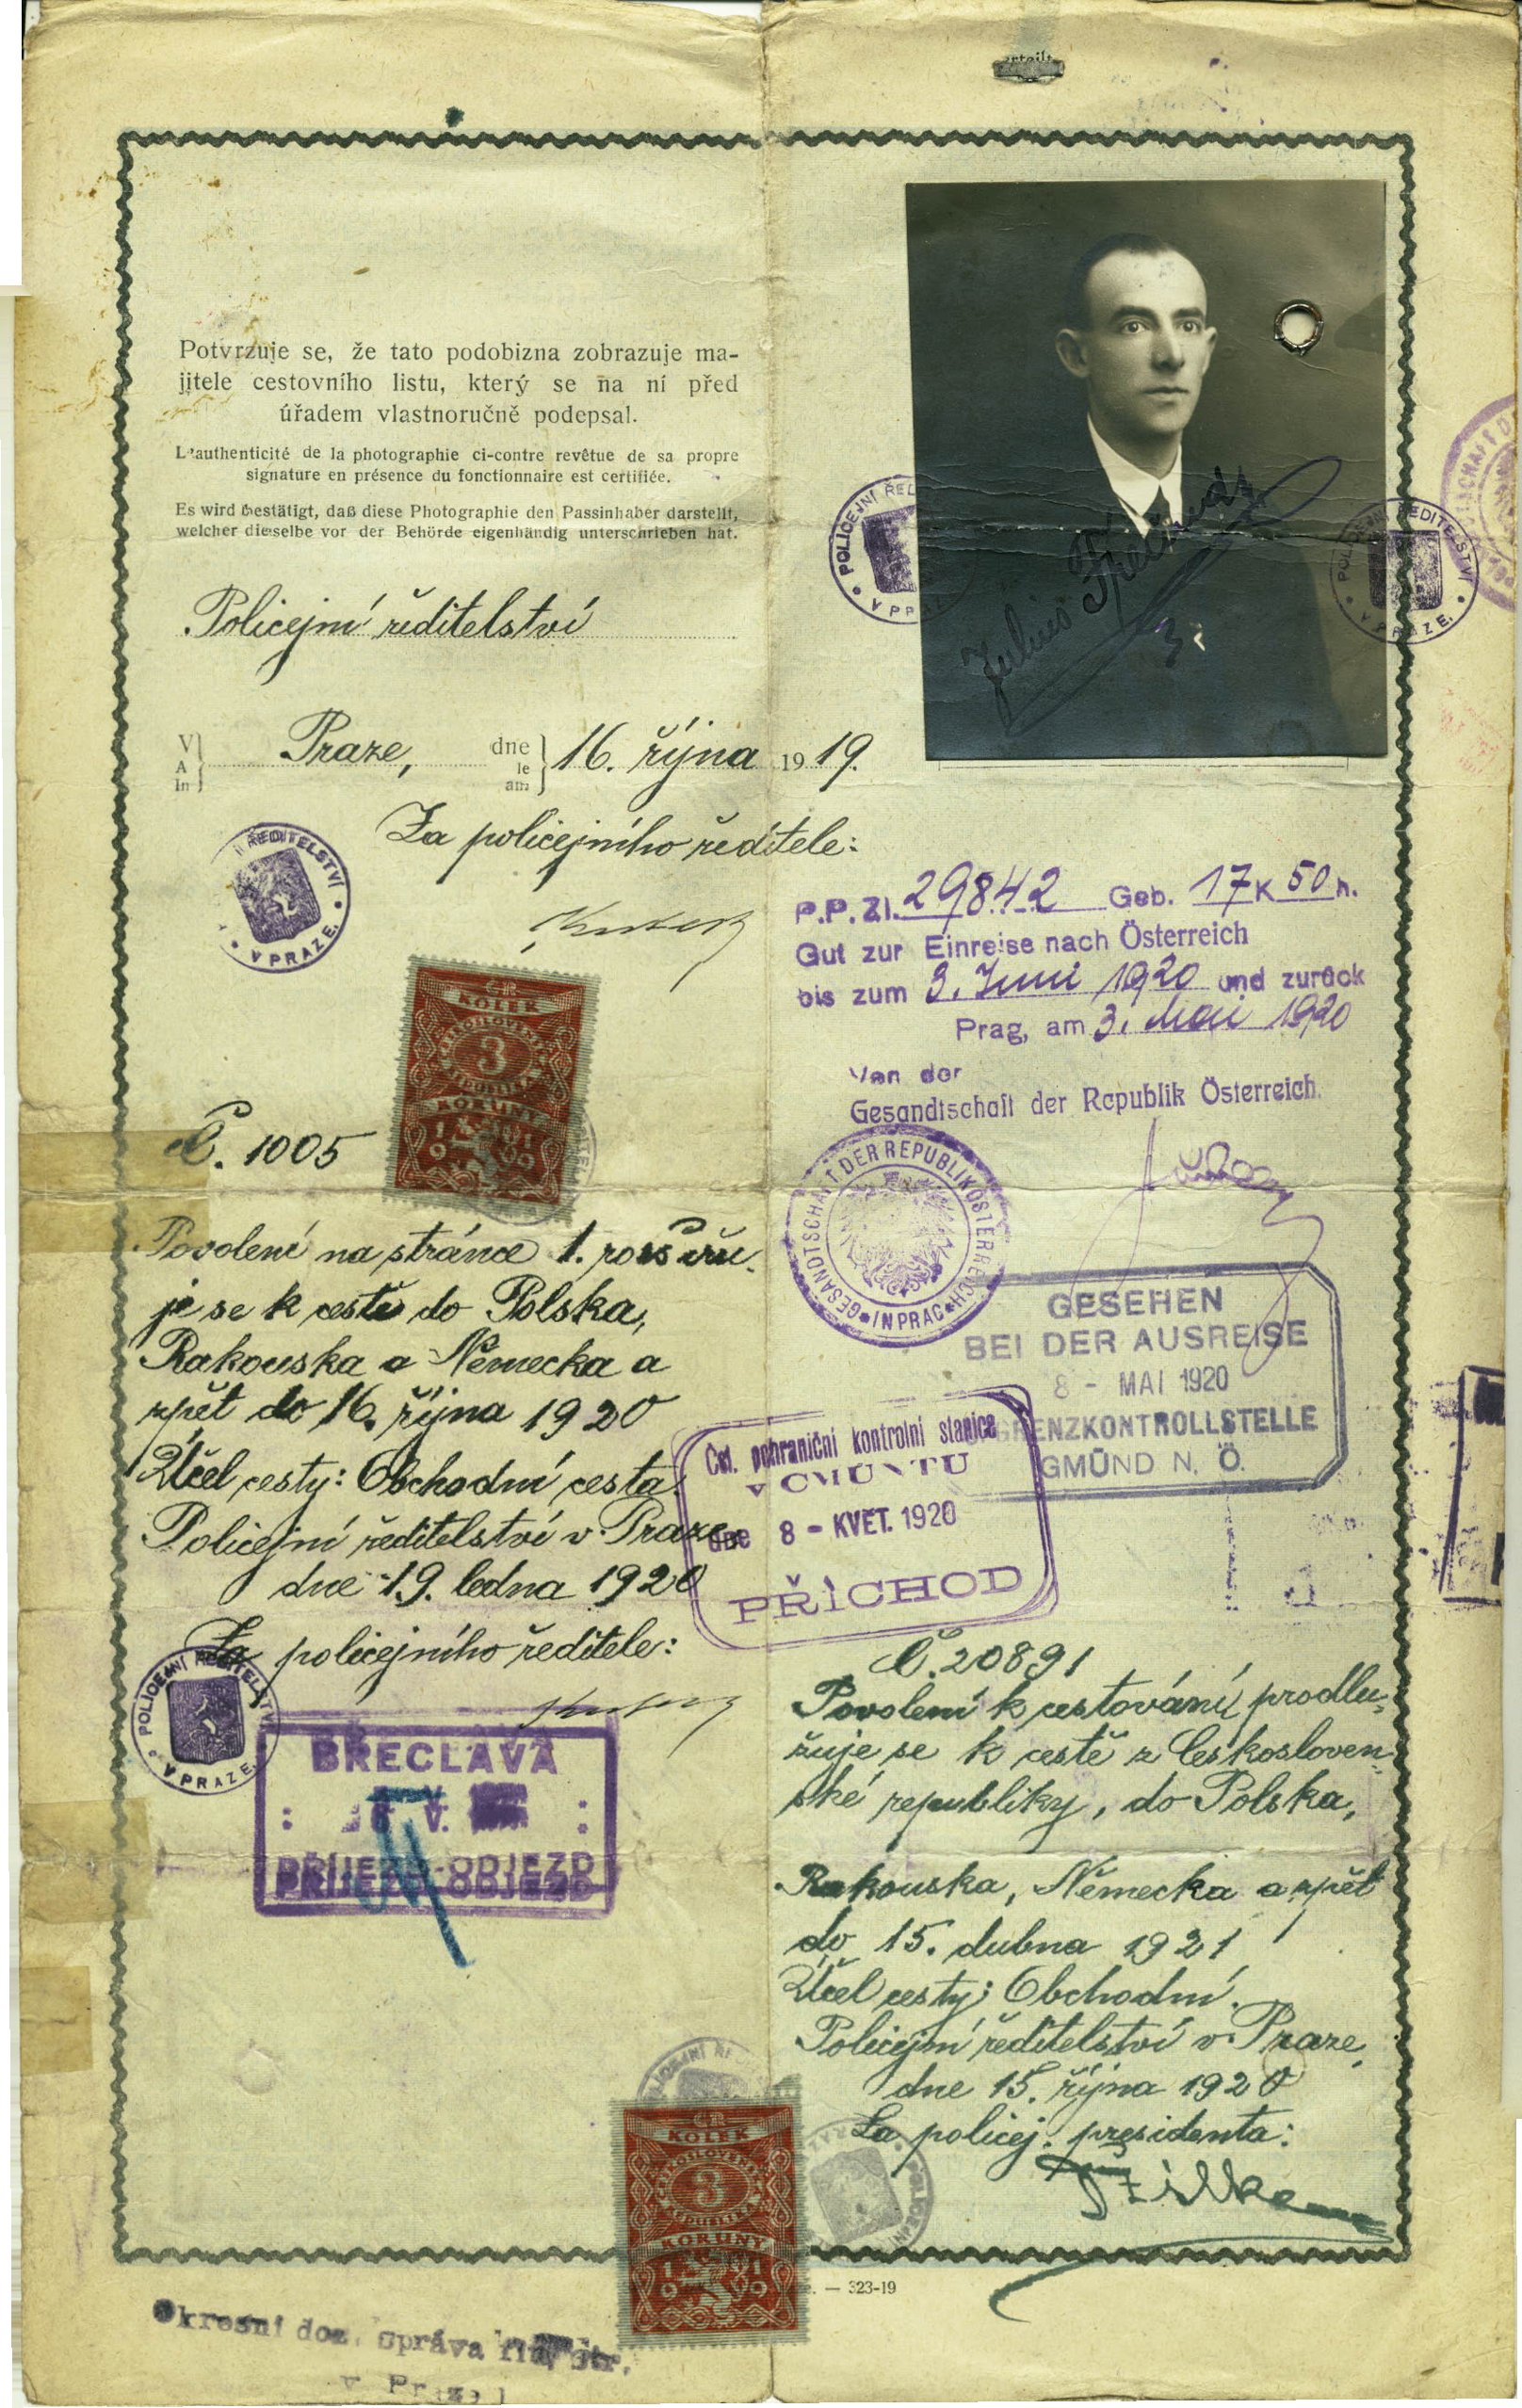 Potvrzuje se, že tato podobizna zobrazuje ma-
jitele cestovního listu, který se na ní před
úřadem vlastnoručně podepsal.
L'authenticité de la photographie ci-contre revêtue de sa propre
signature en présence du fonctionnaire est certifiée.
Es wird bestätigt, daß diese Photographie den Passinhaber darstellt,
welcher dieselbe vor der Behörde eigenhändig unterschrieben hat.
Policejní ředitelství
V
A
In
Praze,
dne
le
am
16. října 1919.
Za policejního ředitele:
ŘEDITELSTVÍ
V PRAZE.
KOLEK
3
KORUNY
1919
Č. 1005
Povolení na stránce 1. rozšiřu-
je se k cestě do Polska,
Rakouska a Německa a
zpět do 16. října 1920
Účel cesty: Obchodní cesta.
Policejní ředitelství v Praze
dne 19. ledna 1920
Za policejního ředitele:
POLICEJNÍ ŘEDITELSTVÍ
V PRAZE.
BŘECLAVA
V.
PŘÍJEZD-ODJEZD
Julius
POLICEJNÍ ŘEDITELSTVÍ
V PRAZE.
P.P. Zl. 29842 Geb. 17 K 50 h.
Gut zur Einreise nach Österreich
bis zum 3. Juni 1920 und zurück
Prag, am 3. Mai 1920
Von der
Gesandtschaft der Republik Österreich.
GESANDTSCHAFT DER REPUBLIK ÖSTERREICH
IN PRAG
GESEHEN
BEI DER AUSREISE
8 - MAI 1920
GRENZKONTROLLSTELLE
GMÜND N. Ö.
Čsl. pohraniční kontrolní stanice
v CMUNTU
dne 8 - KVĚT. 1920
PŘÍCHOD
Č. 20891
Povolení k cestování prodlu-
žuje se k cestě z Českosloven-
ské republiky, do Polska,
Rakouska, Německa a zpět
do 15. dubna 1921
Účel cesty: Obchodní.
Policejní ředitelství v Praze,
dne 15. října 1920
Za policej. presidenta:
Č.R.
KOLEK
3
KORUNY
1919
— 323-19
Okresní doz. správa
v Praze I